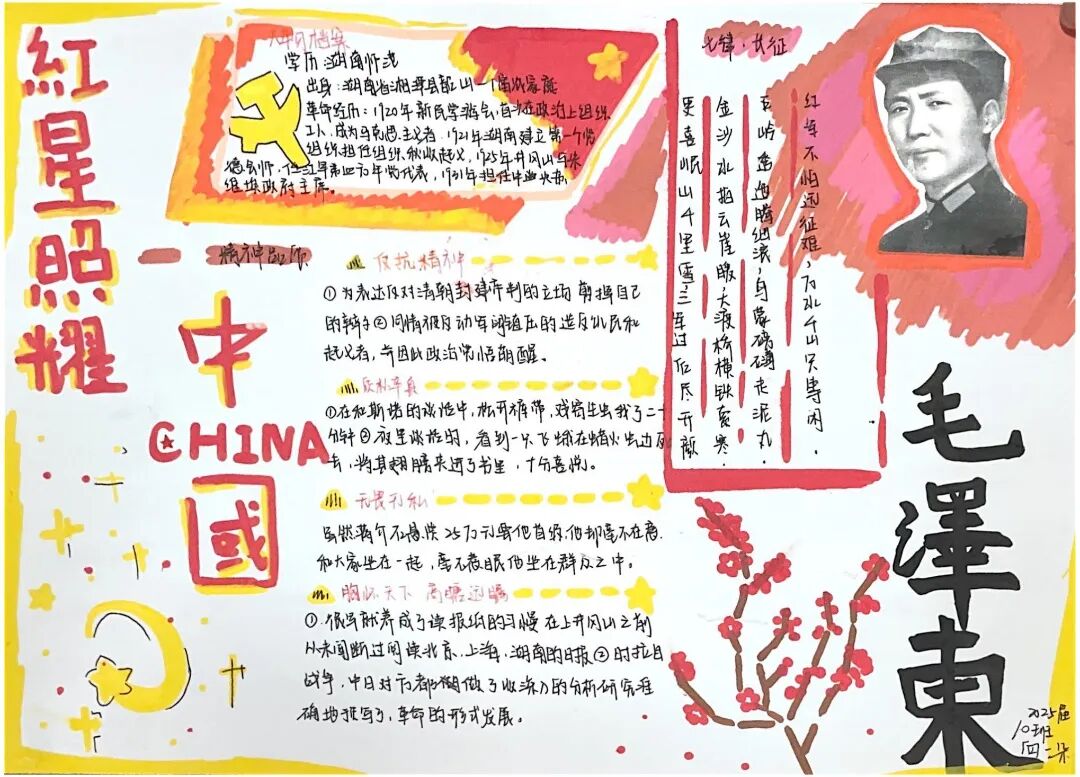 紅星照耀
中
CHINA
國
人物档案
学历：湖南师范
出身：湖南省湘潭县韶山一个富农家庭
革命经历：1920年新民学会,首次在政治上组织
工人,成为马克思主义者,1921年湖南建立第一个党
组织担任组织,秋收起义,1925年井冈山与朱
德会师,任红军第四方军党代表,1931年担任中央
组埃政府主席。
七律·长征
红军不怕远征难,万水千山只等闲.
五岭逶迤腾细浪,乌蒙磅礴走泥丸.
金沙水拍云崖暖,大渡桥横铁索寒.
更喜岷山千里雪,三军过后尽开颜
精神品质
反抗精神
①为表达反对清朝封建帝制的立场剪掉自己
的辫子②同情被反动军阀镇压的造反饥民和
起义者,并因此政治觉悟觉醒。
反礼
①在和斯诺的谈话中,松开裤带,找寄生虫找了二十
分钟②夜里谈话时,看到一只飞蛾在蜡火虫边
去,将其翅膀夹进了书里,十分喜悦。
无畏无私
虽然蒋介石悬赏25万元要他首级,他却毫不在意.
和大家坐在一起,毫不意眼他坐在群众之中。
胸怀天下 高瞻远瞩
①很早就养成了读报纸的习惯 在上井冈山之前
从未间断过阅读北京,上海,湖南的日报②时抗日
战争,中日对方都做了有活力的分析研究准
确地撰写了,革命的形式发展。
毛澤東
2025届
10班